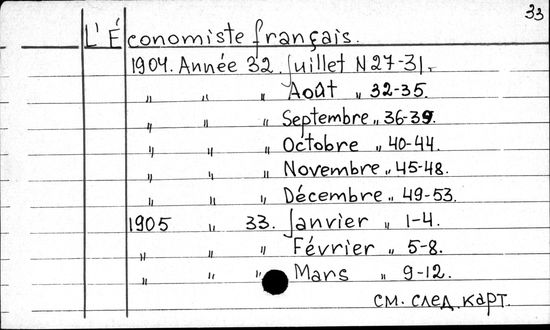 33
L'Économiste français.
1904. Année 32. Juillet N 27-31.
„ „ „ Août „ 32-35.
„ „ „ Septembre „ 36-39.
„ „ „ Octobre „ 40-44.
„ „ „ Novembre „ 45-48.
„ „ „ Décembre „ 49-53.
1905 „ 33. Janvier „ 1-4.
„ „ „ Février „ 5-8.
„ „ „ Mars „ 9-12.
см. след. карт.